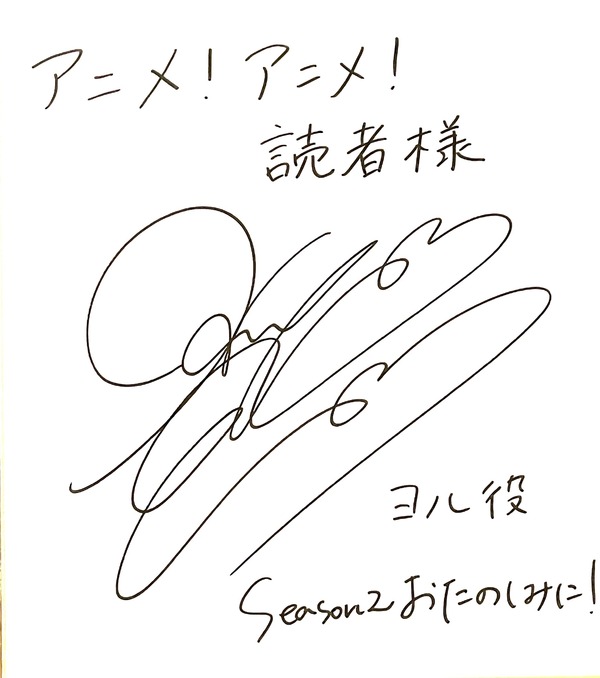 アニメ！アニメ！
読者様
ヨル役
Season2おたのしみに！